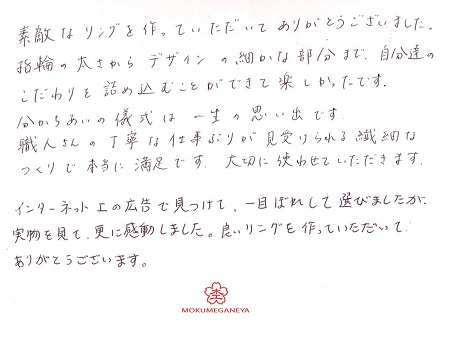 素敵なリングを作っていただいてありがとうございました。
指輪の太さからデザインの細かな部分まで、自分達の
こだわりを詰め込むことができて楽しかったです。
分かちあいの儀式は一生の思い出です。
職人さんの丁寧な仕事ぶりが見受けられる繊細な
つくりで本当に満足です。大切に使わせていただきます。
インターネット上の広告で見つけて、一目ぼれして選びましたが、
実物を見て、更に感動しました。良いリングを作っていただいて
ありがとうございます。
MOKUMEGANEYA